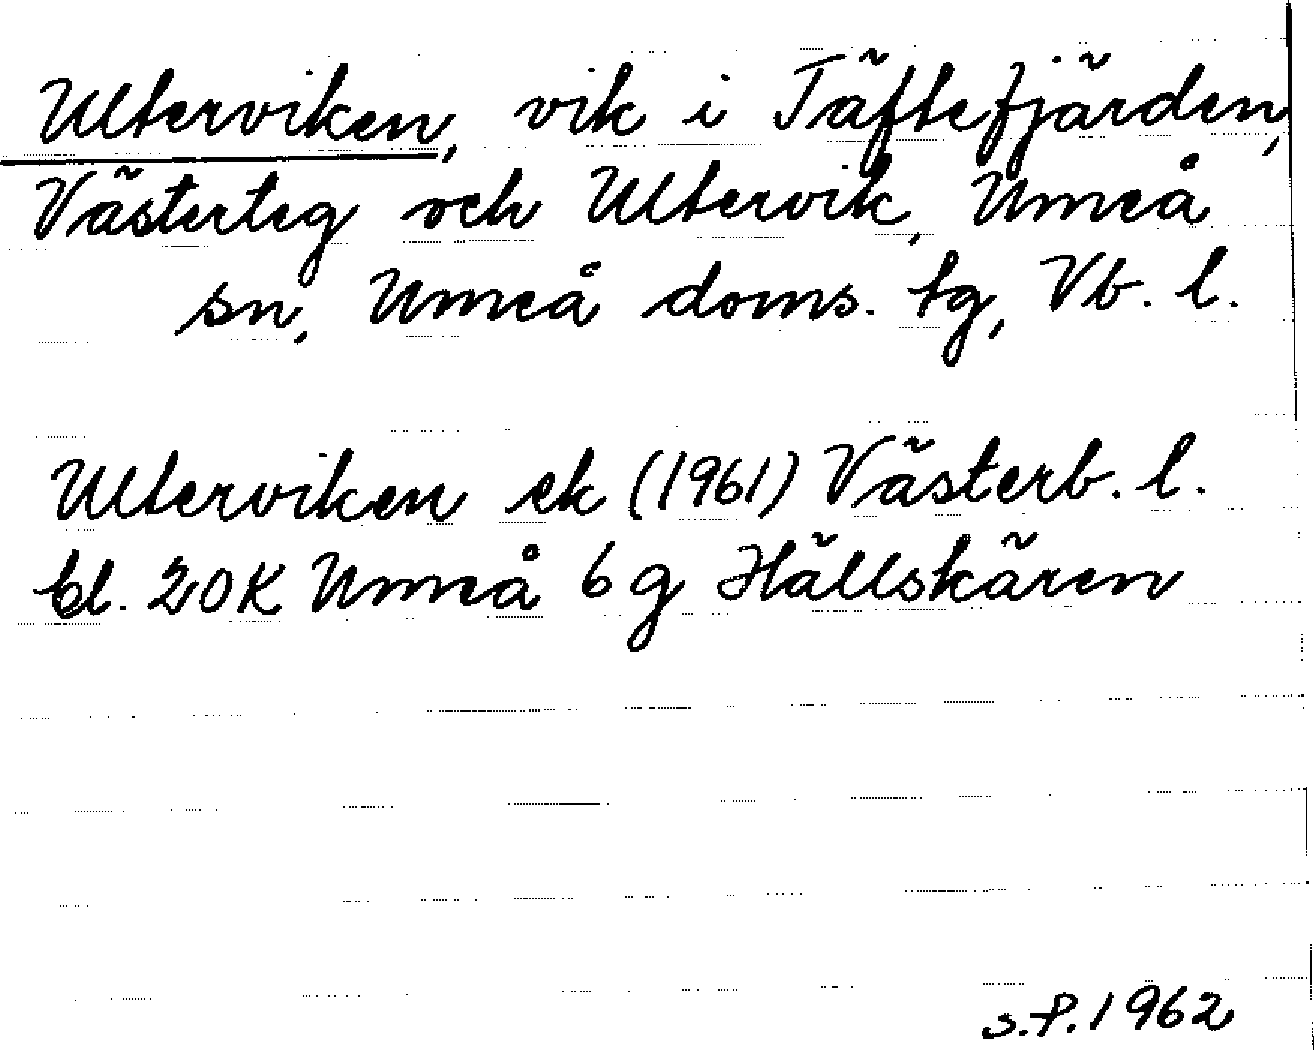 Ulterviken, vik i Täftefjärden,
Västerteg och Ultervik, Umeå
sn, Umeå doms. tg, Vb. l.
Ulterviken ek (1961) Västerb. l.
bl. 20K Umeå 6g Hällskären
s.P. 1962